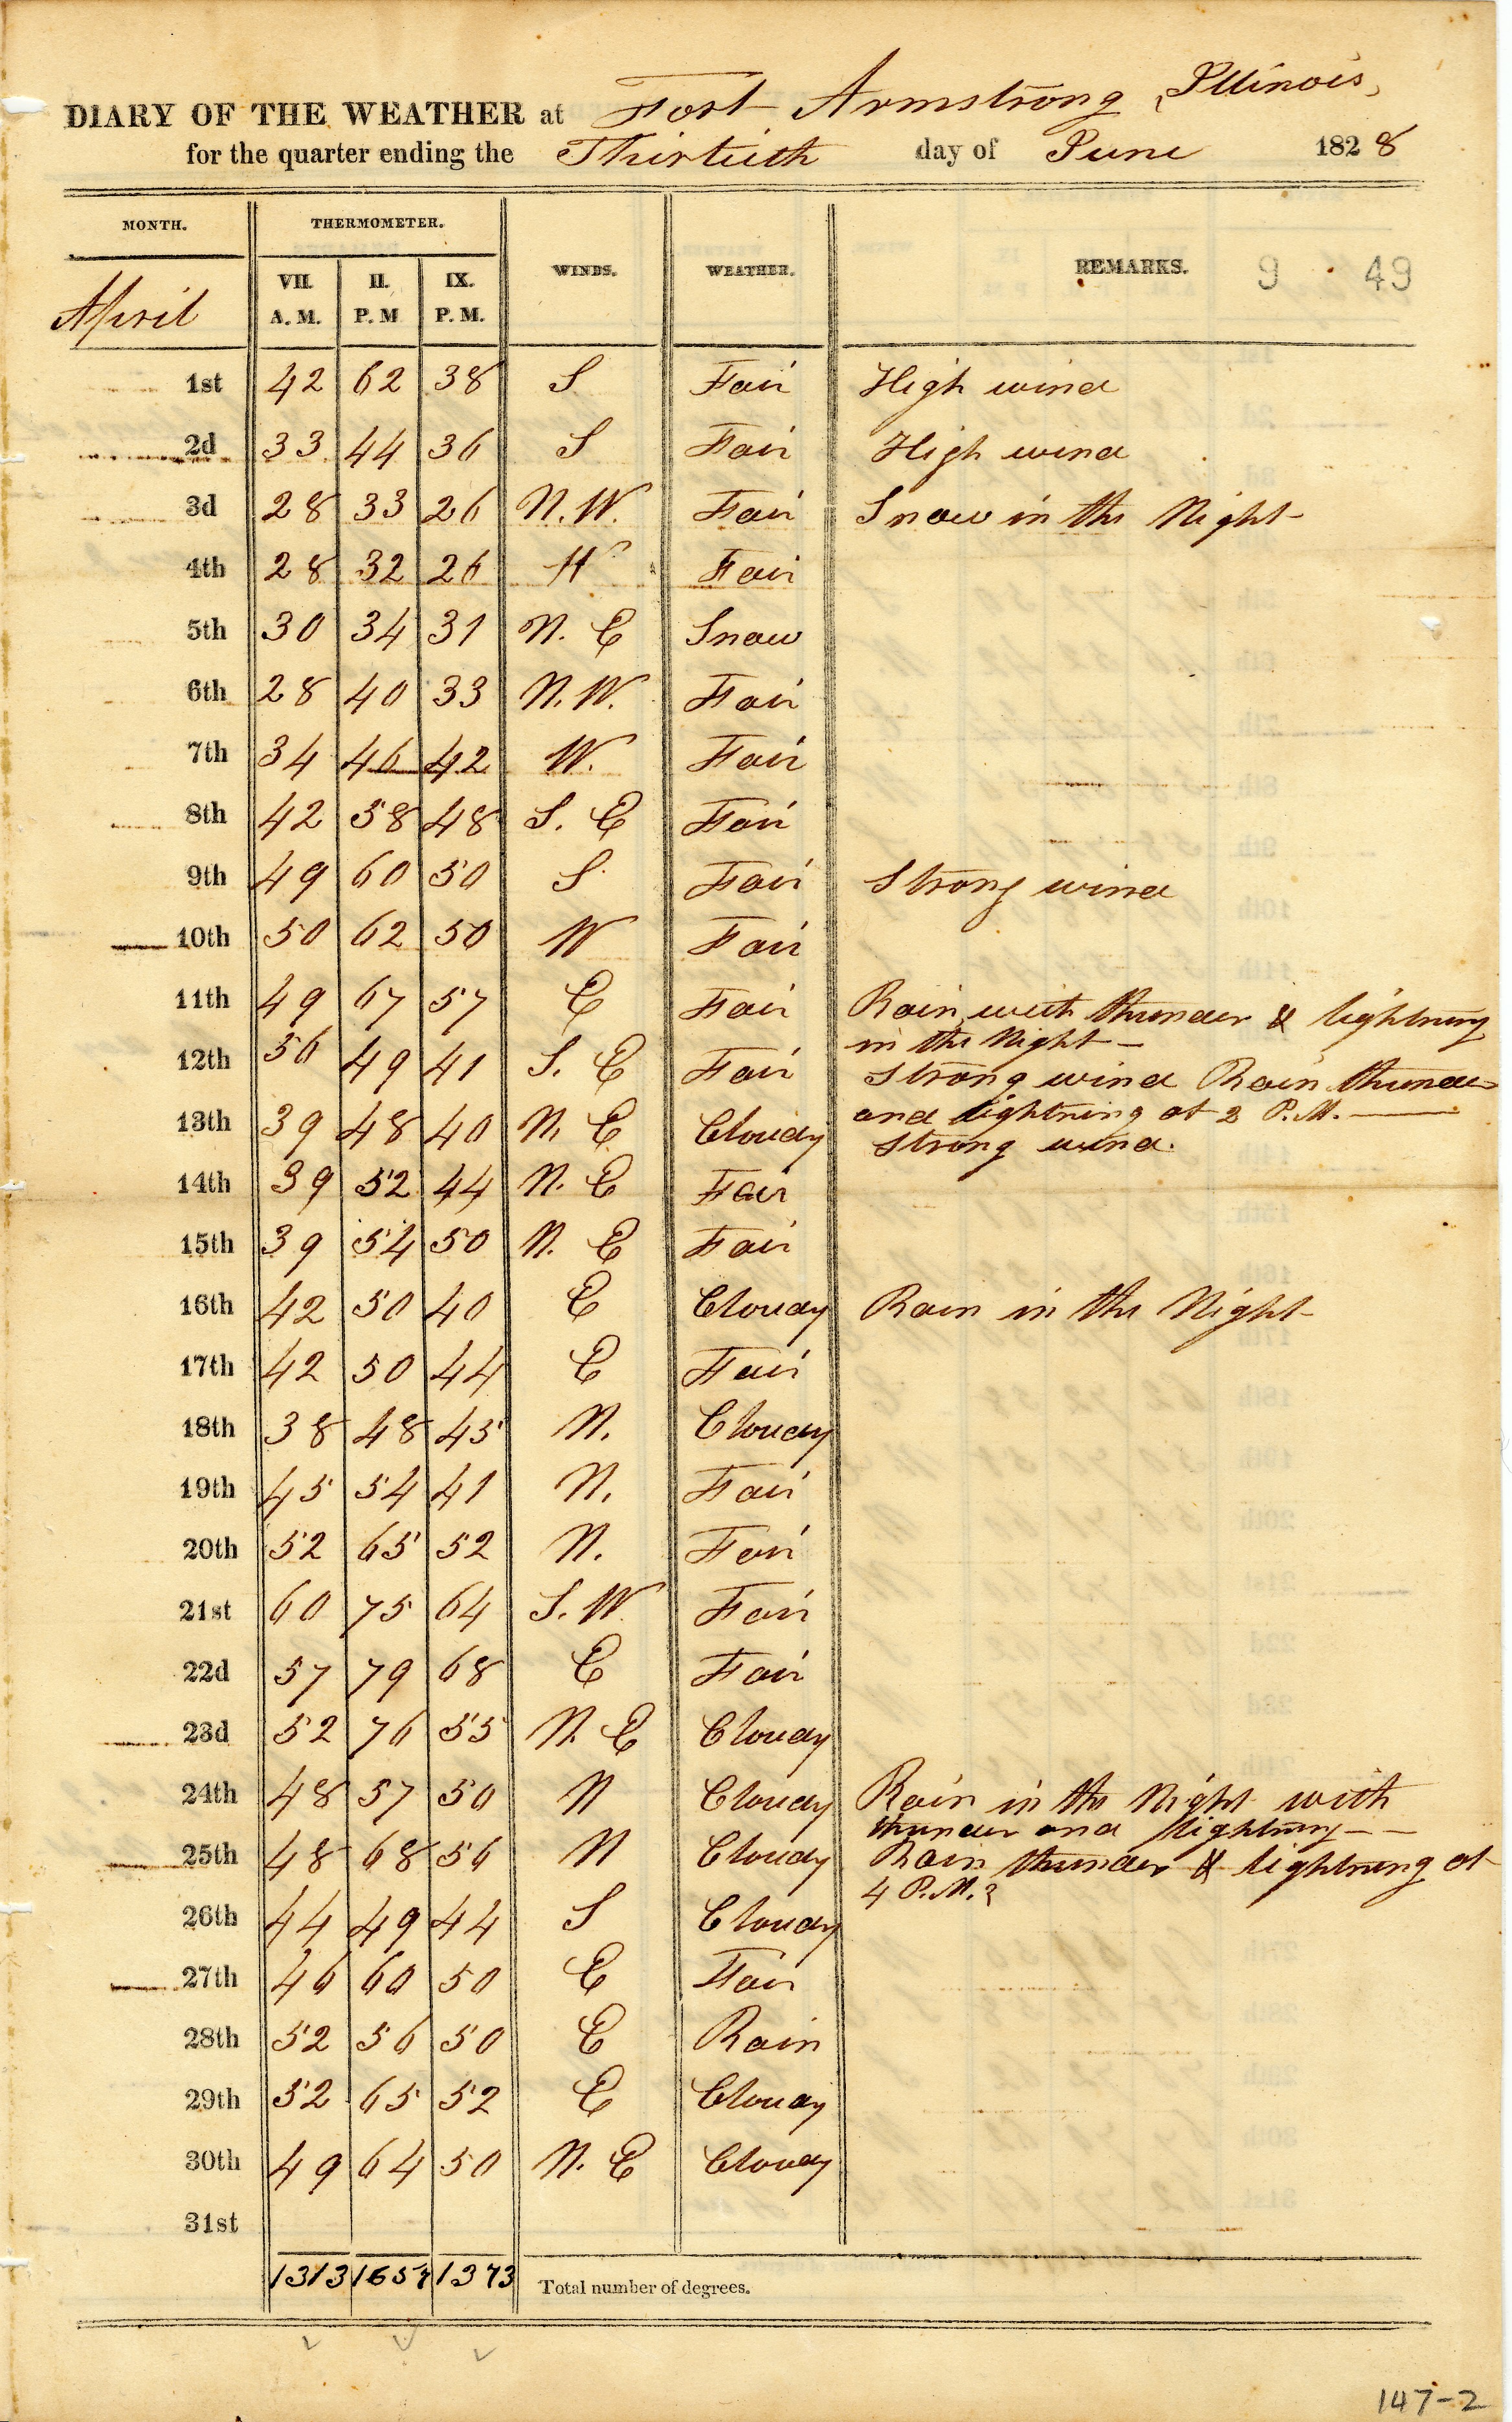 DIARY OF THE WEATHER at Fort Armstrong, Illinois,
for the quarter ending the Thirtieth day of June 1828
MONTH. THERMOMETER. WINDS. WEATHER. REMARKS. 9 49
April VII. A.M. II. P.M IX. P.M.
1st 42 62 38 S Fair High wind
2d 33 44 36 S Fair High wind
3d 28 33 26 N.W. Fair Snow in the Night
4th 28 32 26 W Fair
5th 30 34 31 N. E Snow
6th 28 40 33 N.W. Fair
7th 34 46 42 W. Fair
8th 42 58 48 S. E Fair
9th 49 60 50 S Fair Strong wind
10th 50 62 50 W Fair
11th 49 67 57 E Fair Rain with thunder & lightning
in the Night —
12th 56 49 41 S. E Fair Strong wind Rain thunder
and lightning at 2 P.M. —
13th 39 48 40 N. E Cloudy Strong wind.
14th 39 52 44 N. E Fair
15th 39 54 50 N. E Fair
16th 42 50 40 E Cloudy Rain in the Night
17th 42 50 44 E Fair
18th 38 48 45 N. Cloudy
19th 45 54 41 N. Fair
20th 52 65 52 N. Fair
21st 60 75 64 S. W. Fair
22d 57 79 68 E Fair
23d 52 76 55 N. E Cloudy
24th 48 57 50 N Cloudy Rain in the Night with
thunder and lightning — —
25th 48 68 56 N Cloudy Rain thunder & lightning at
4 P.M.
26th 44 49 44 S Cloudy
27th 46 60 50 E Fair
28th 52 56 50 E Rain
29th 52 65 52 E Cloudy
30th 49 64 50 N. E Cloudy
31st
1313 1657 1373 Total number of degrees.
147-2